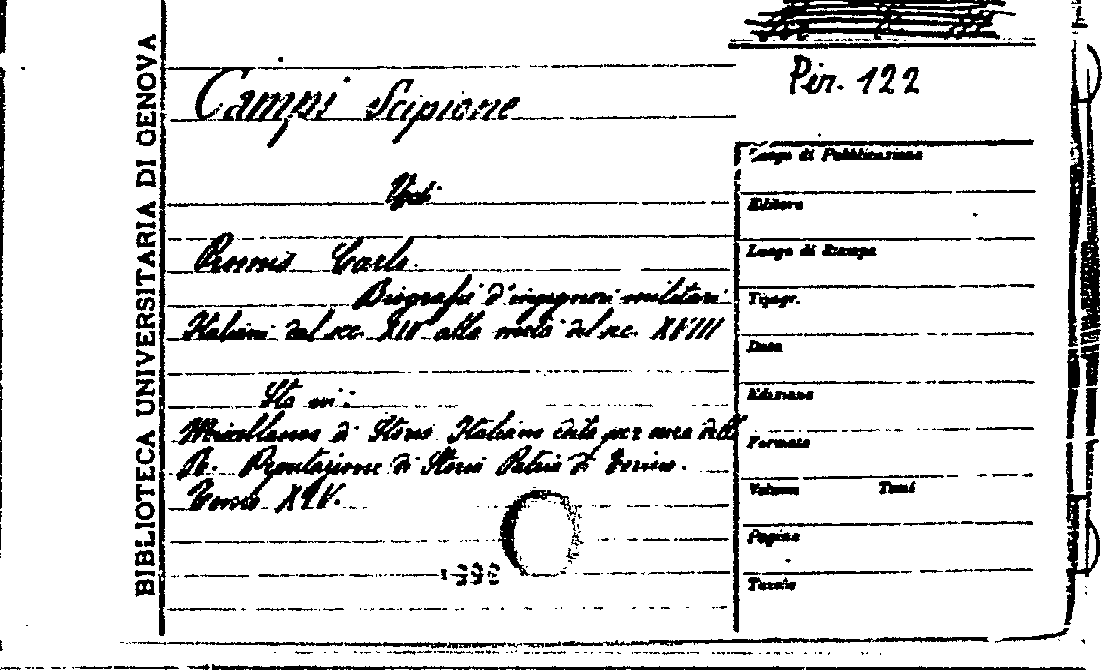 BIBLIOTECA UNIVERSITARIA DI GENOVA
Per. 122
Campi Scipione
Vedi
Promis Carlo.
Biografie d'ingegneri militari
Italiani dal sec. XIV alla metà del sec. XVIII
Sta in:
Miscellanea di Storia Italiana edita per cura della
R. Deputazione di Storia Patria di Torino.
Tomo XIV.
Luogo di Pubblicazione
Editore
Luogo di Stampa
Tipogr.
Data
Edizione
Formato
Volume Tomi
Pagine
Tavole